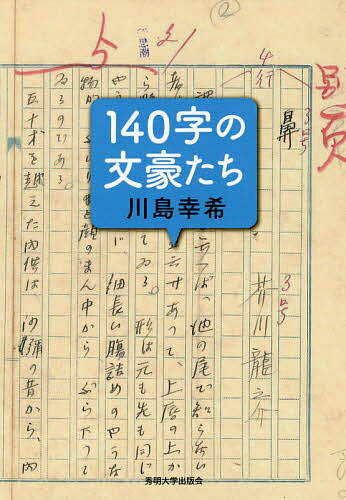 140字の
文豪たち
川島幸希
4行
鼻
芥川龍之介
へば、池の尾で知らない
六寸あつて、上唇の上か
てゐる。形は元も先も同じ
細長い腸詰めのやうな
顔のまん中からぶら下つて
ゐるのである。
五十才を越えた内供は、沙彌の昔から、内
秀明大学出版会